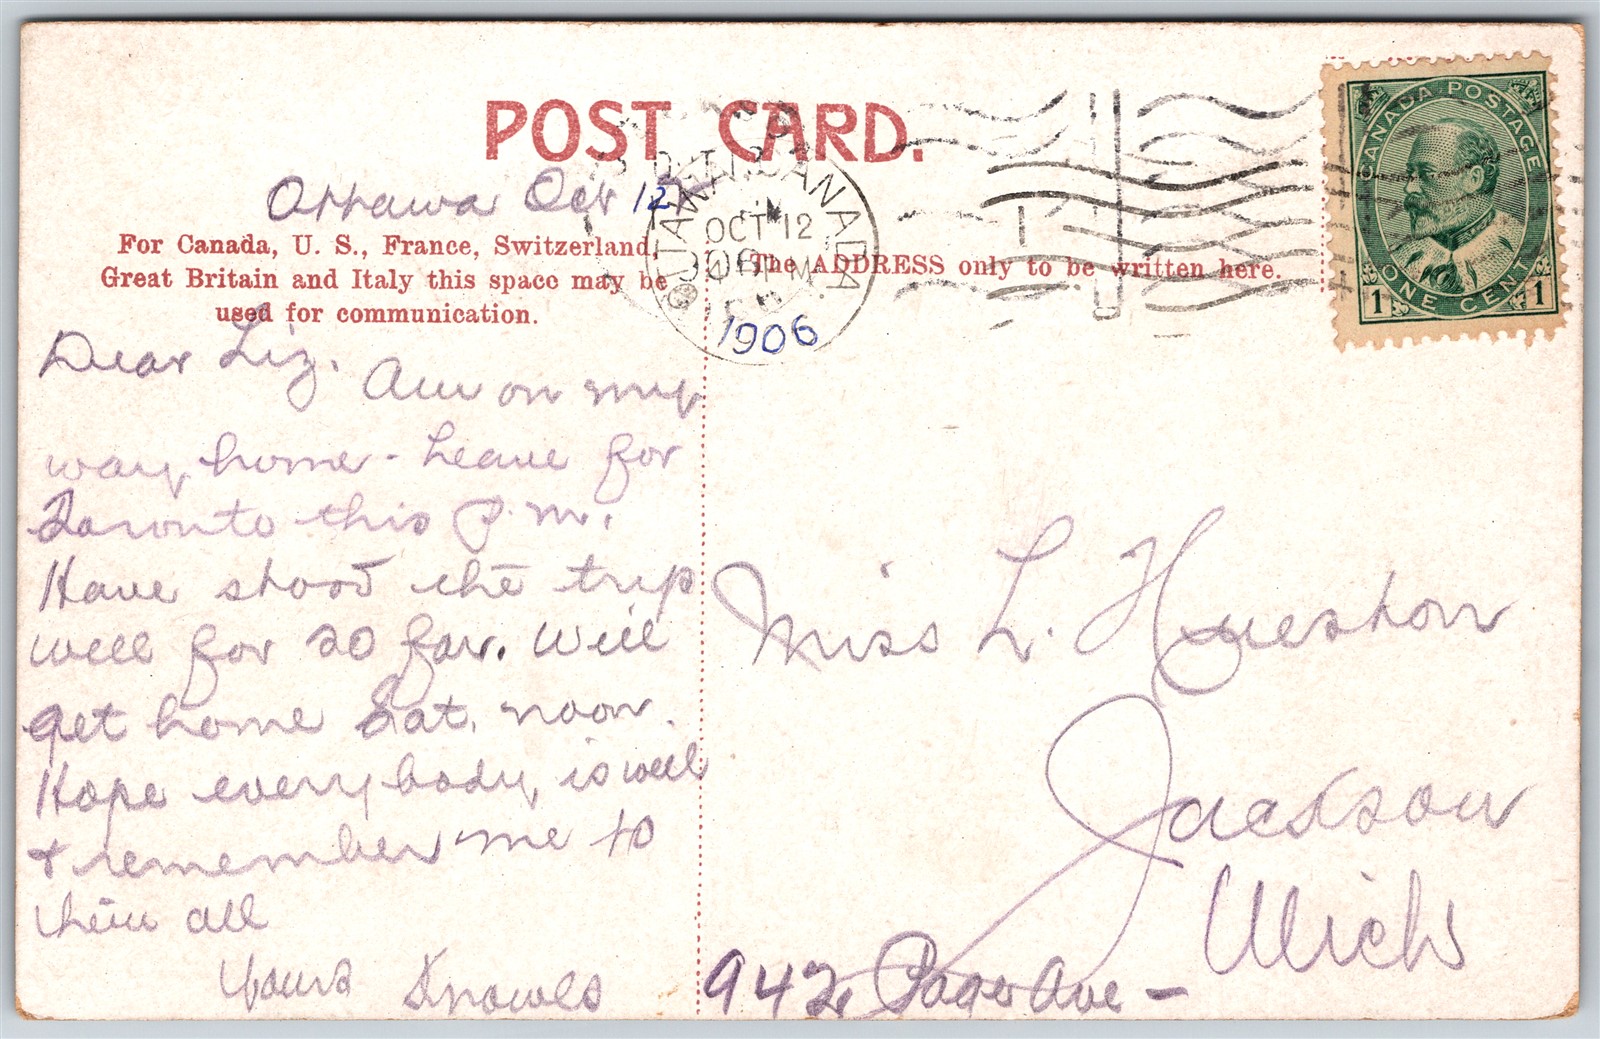 POST CARD.
Ottawa Oct 12
For Canada, U. S., France, Switzerland,
Great Britain and Italy this space may be
used for communication.
Dear Liz. Am on my
way home - Leave for
Toronto this P.M.
Have stood the trip
well for so far. Will
get home Sat. noon.
Hope everybody is well
& remember me to
them all
Yours Knowles
OTTAWA, CANADA
OCT 12
1906
The ADDRESS only to be written here.
CANADA POSTAGE
1 ONE CENT 1
Miss L. Hueston
Jackson
Mich
942 Page Ave -